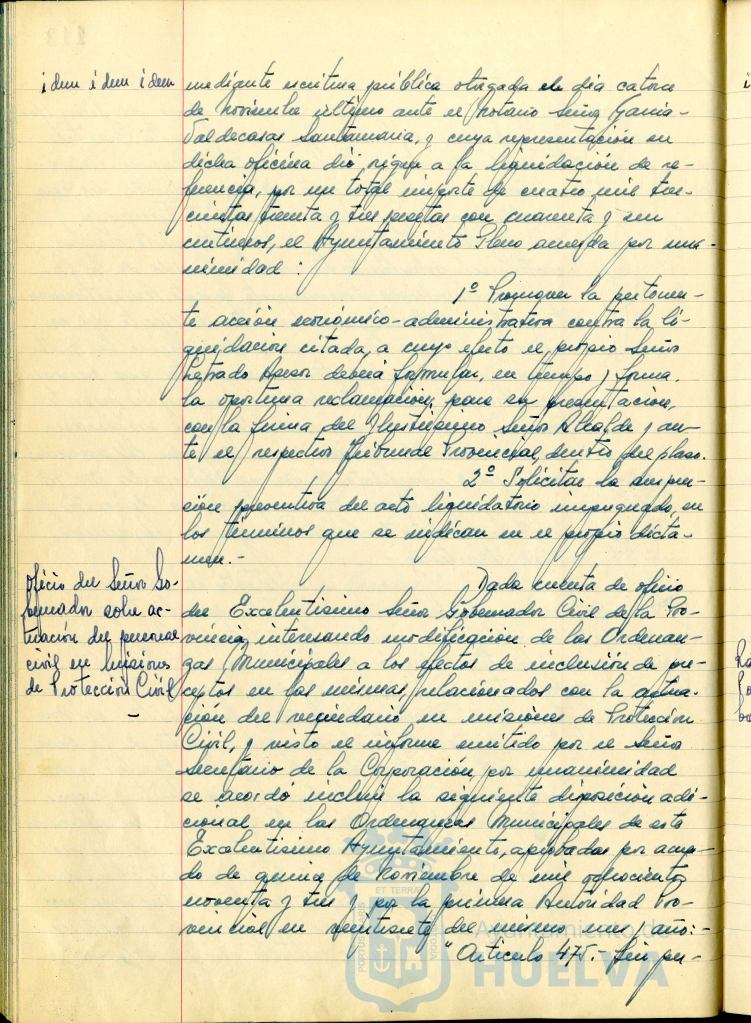 idem idem idem
mediante escritura pública otorgada el día catorce
de noviembre último ante el Notario Señor García-
Valdecasas Santamaría, y cuya representación en
dicha oficina dió origen a la liquidación de re-
ferencia, por un total importe de cuatro mil tres-
cientas treinta y tres pesetas con cuarenta y un
céntimos, el Ayuntamiento Pleno acuerda por una-
nimidad:
1º Promover la pertinen-
te acción económico-administrativa contra la li-
quidación citada, a cuyo efecto el propio Señor
Letrado Asesor deberá formular, en tiempo y forma,
la oportuna reclamación, para su presentación,
con la firma del Ilustrísimo Señor Alcalde y an-
te el respectivo Tribunal Provincial, dentro del plazo.
2º Solicitar la suspen-
sión preventiva del acto liquidatorio impugnado, en
los términos que se indican en el propio dicta-
men.-
Oficio del Señor Go-
bernador sobre ac-
tuación del personal
civil en misiones
de Protección Civil
-
Dada cuenta de oficio
del Excelentísimo Señor Gobernador Civil de la Pro-
vincia, interesando modificación de las Ordenan-
zas Municipales a los efectos de inclusión de pre-
ceptos en las mismas, relacionados con la actua-
ción del vecindario en misiones de Protección
Civil, y visto el informe emitido por el Señor
Secretario de la Corporación, por unanimidad
se acordó incluir la siguiente disposición adi-
cional en las Ordenanzas Municipales de este
Excelentísimo Ayuntamiento, aprobadas por acuer-
do de quince de Noviembre de mil ochocientos
noventa y tres y por la primera Autoridad Pro-
vincial en veintisiete del mismo mes y año:-
"Artículo 475.- Sin per-
HUELVA